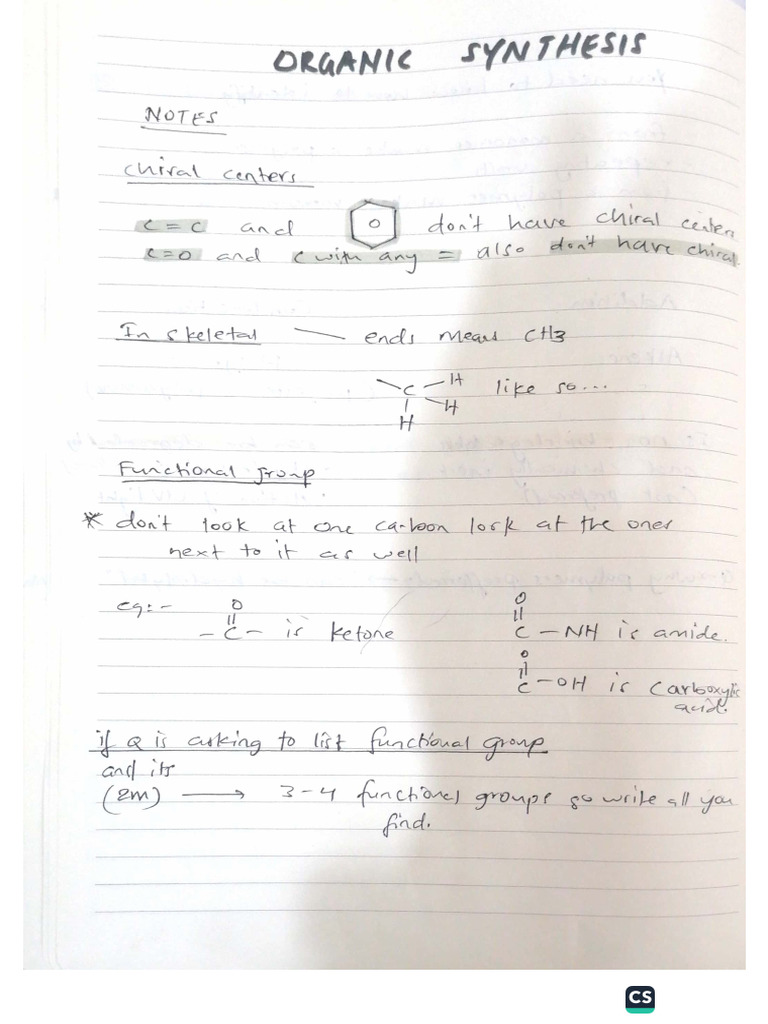 ORGANIC SYNTHESIS
NOTES
Chiral centers
C = C and O don't have chiral centers
C=O and C with any = also don't have chiral.
In skeletal — ends means CH3
C H H H like so...
Functional group
* don't look at one carbon look at the ones
next to it as well
eg:- O
- C - is ketone
O
C - NH is amide.
O
C - OH is carboxylic
acid.
if Q is asking to list functional group
and its
(2m) → 3-4 functional groups so write all you
find.
CS